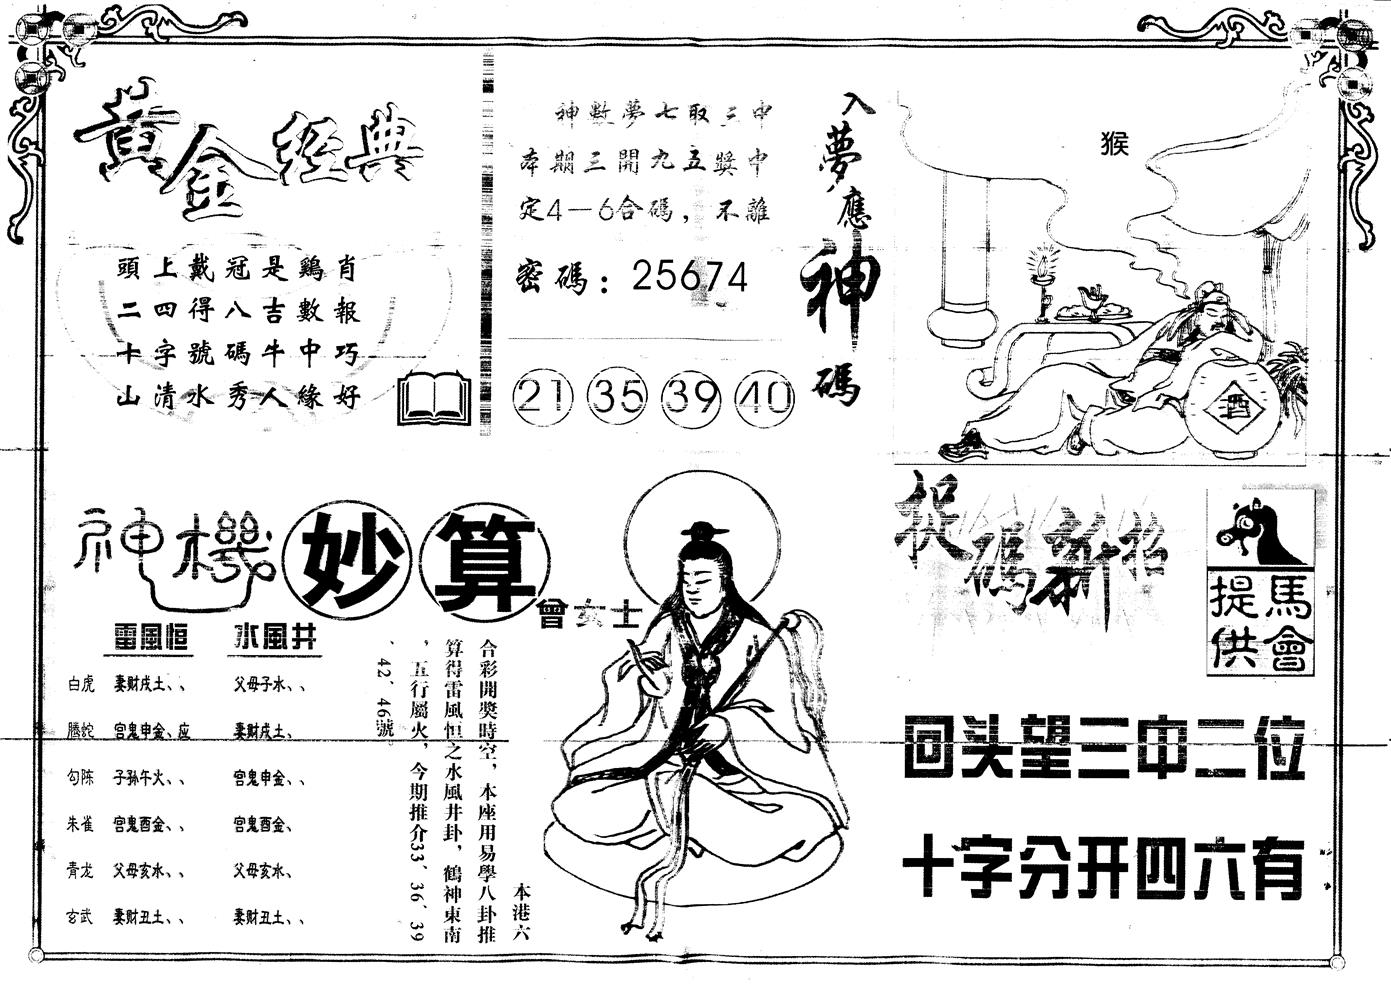 黃金經典
頭上戴冠是鷄肖
二四得八吉數報
十字號碼牛中巧
山清水秀人緣好
神數夢七取三中
本期三開九五獎中
定4—6合碼，不離
密碼：25674
21 35 39 40
入夢應神碼
猴
酉
神機妙算
曾女士
雷風恒 水風井
白虎 妻財戌土、、 父母子水、、
螣蛇 宫鬼申金、应 妻財戌土、
勾陈 子孙午火、、 宫鬼申金、、
朱雀 宫鬼酉金、、 宫鬼酉金、
青龙 父母亥水、、 父母亥水、
玄武 妻财丑土、、 妻财丑土、、
本港六
合彩開獎時空，本座用易學八卦推
算得雷風恒之水風井卦，鶴神東南
，五行屬火，今期推介33、36、39
、42、46號。
捉碼新招
馬會
提供
回头望三中二位
十字分开四六有